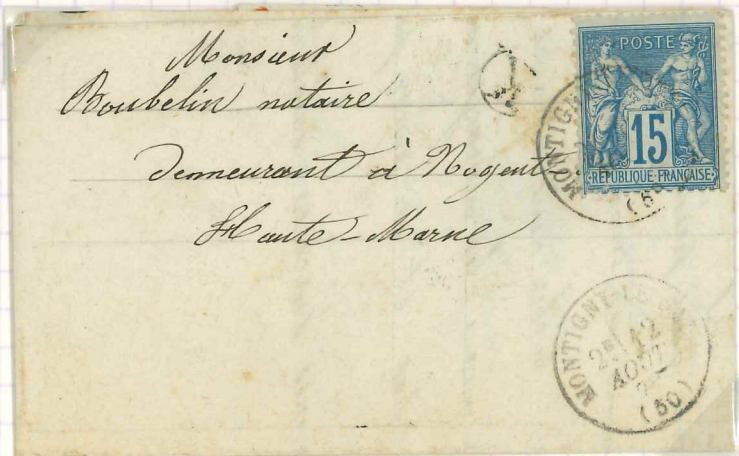 Monsieur
Boubelin notaire
demeurant à Nogent
Haute-Marne
POSTE
15
REPUBLIQUE FRANÇAISE
MONTIGNY
MONTIGNY-LE
2E 12
AOUT
(50)